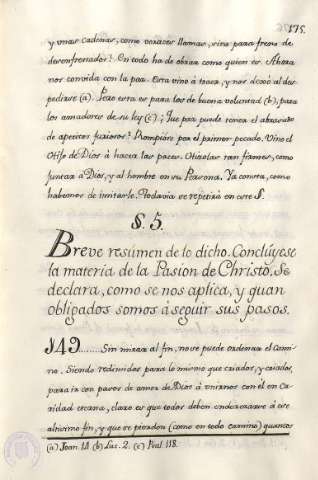 175.
y unas cadenas, como voraces llamas, sirva para freno de
desenfrenados? En todo ha de obrar como quien es. Ahora
nos convida con la paz. Esta vino á traer, y nos dexó al des-
pedirse (a). Pero esta es para los de buena voluntad (b), para
los amadores de su ley (c). ¿Que paz puede tener el abrasado
de apetitos furiosos? Rompióse por el primer pecado. Vino el
Hijo de Dios á hacer las paces. Hízolas tan firmes, como
juntar á Dios, y al hombre en su Persona. Ya consta, como
habemos de imitarle. Todavía se repetirá en este §.
§. 5.
Breve resúmen de lo dicho. Conclúyese
la materia de la Pasion de Christo. Se
declara, como se nos aplica, y quan
obligados somos á seguir sus pasos.
149....... Sin mirar al fin, no se puede ordenar el cami-
no. Siendo redimidos para lo mismo que criados, y criados,
para ir con pasos de amor de Dios á unirnos con él en ca-
ridad eterna, claro es que todos deben enderezarse á este
altísimo fin, y que se pierden (como en todo camino) quantos
(a) Joan. 14. (b) Luc. 2. (c) Psal. 118.